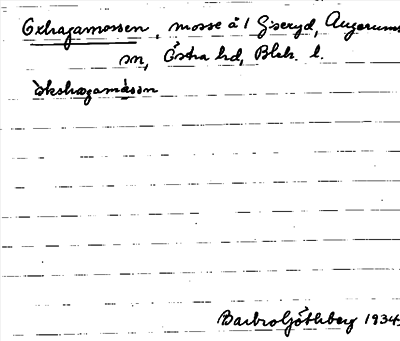 Oxhagamossen, mosse å 1 Giseryd, Augerums
sn, Östra hd, Blek. l.
òkshagamåssn
Barbro Götlberg 1934.